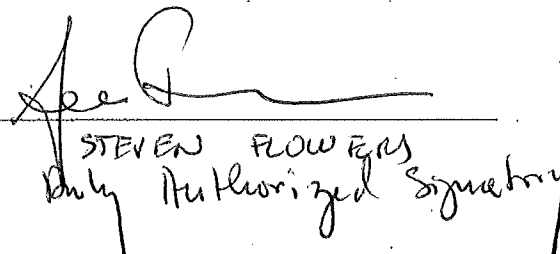 STEVEN FLOWERS
Duly Authorized Signatory